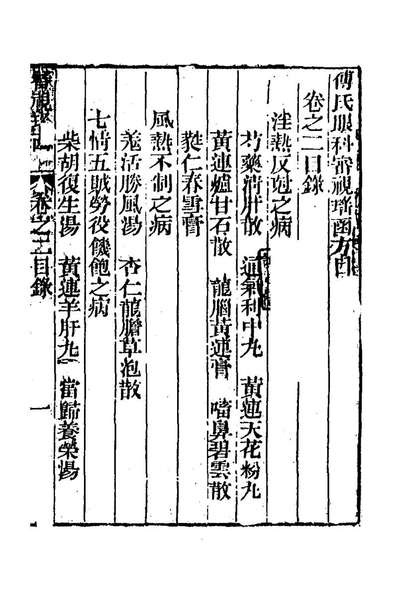 傅氏眼科審視瑤函
卷之二目錄
淫熱反尅之病
芍藥清肝散 通氣利中丸 黃連天花粉丸
黃連爐甘石散 龍腦黃連膏 㗜鼻碧雲散
蕤仁春雪膏
風熱不制之病
羗活勝風湯 杏仁龍膽草泡散
七情五賊勞役饑飽之病
柴胡復生湯 黃連羊肝丸 當歸養榮湯
卷之二目錄 一